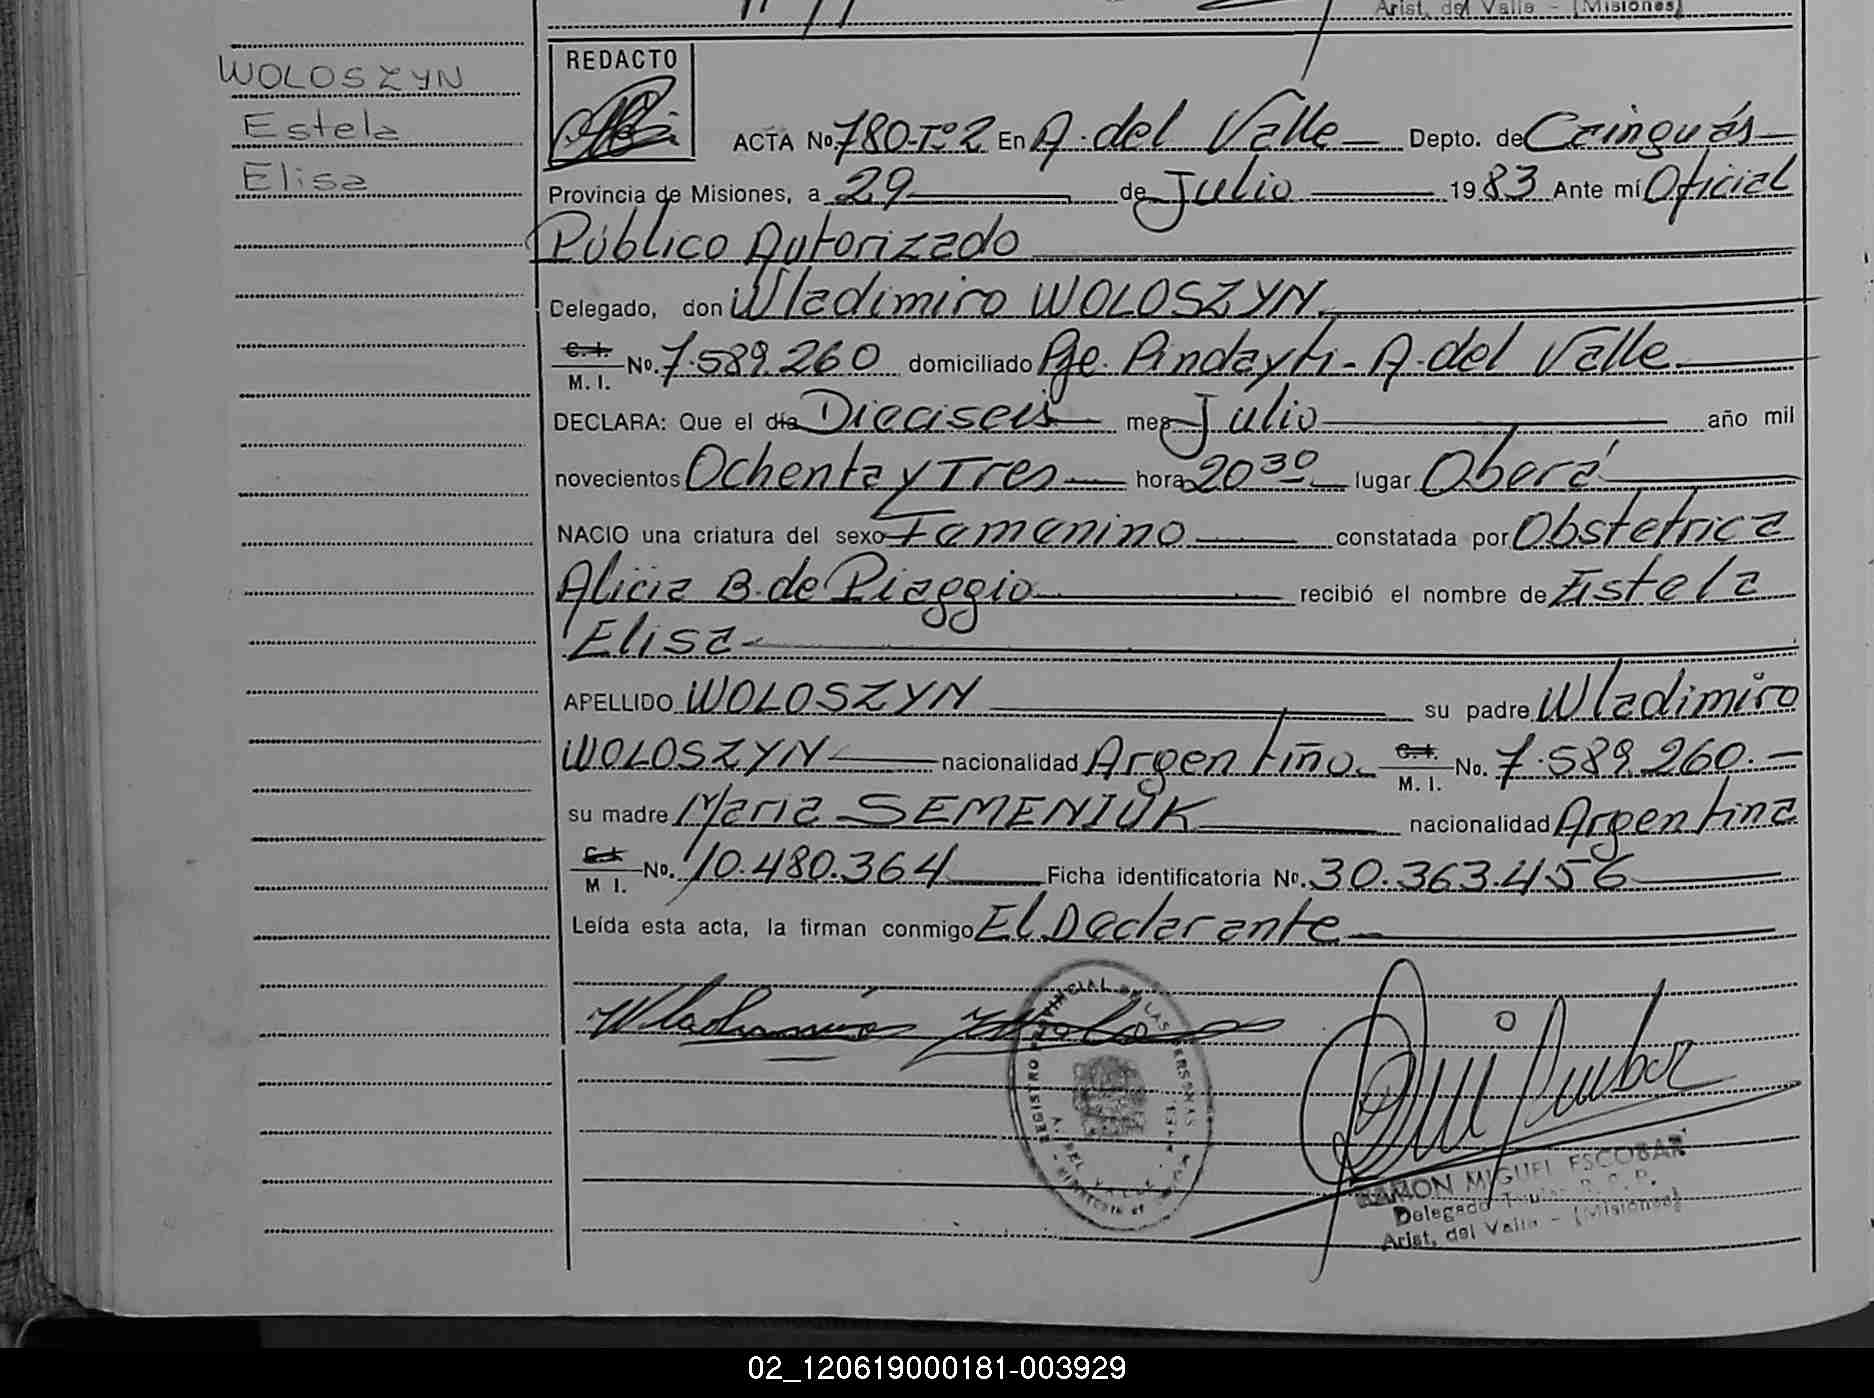 Arist. del Valle - (Misiones)
WOLOSZYN
Estela
Elisa
REDACTO
ACTA No. 780-Tº2 En A. del Valle Depto. de Cainguás
Provincia de Misiones, a 29 de Julio 1983 Ante mí Oficial
Público Autorizado
Delegado, don Wladimiro WOLOSZYN
C. I. M. I. No. 7.589.260 domiciliado Pje. Pindayti - A. del Valle
DECLARA: Que el día Dieciseis mes Julio año mil
novecientos Ochenta y Tres hora 20 30 lugar Oberá
NACIO una criatura del sexo Femenino constatada por Obstetrica
Alicia B. de Piaggio recibió el nombre de Estela
Elisa
APELLIDO WOLOSZYN su padre Wladimiro
WOLOSZYN nacionalidad Argentino. C. I. M. I. No. 7.589.260.-
su madre Maria SEMENIUK nacionalidad Argentina
C. I. M I. No. 10.480.364 Ficha identificatoria No. 30.363.456
Leída esta acta, la firman conmigo El Declarante
REGISTRO PROVINCIAL DE LAS PERSONAS
A. DEL VALLE
RAMON MIGUEL ESCOBAR
Delegado Titular R. C. P.
Arist. del Valle - (Misiones)
02_120619000181-003929